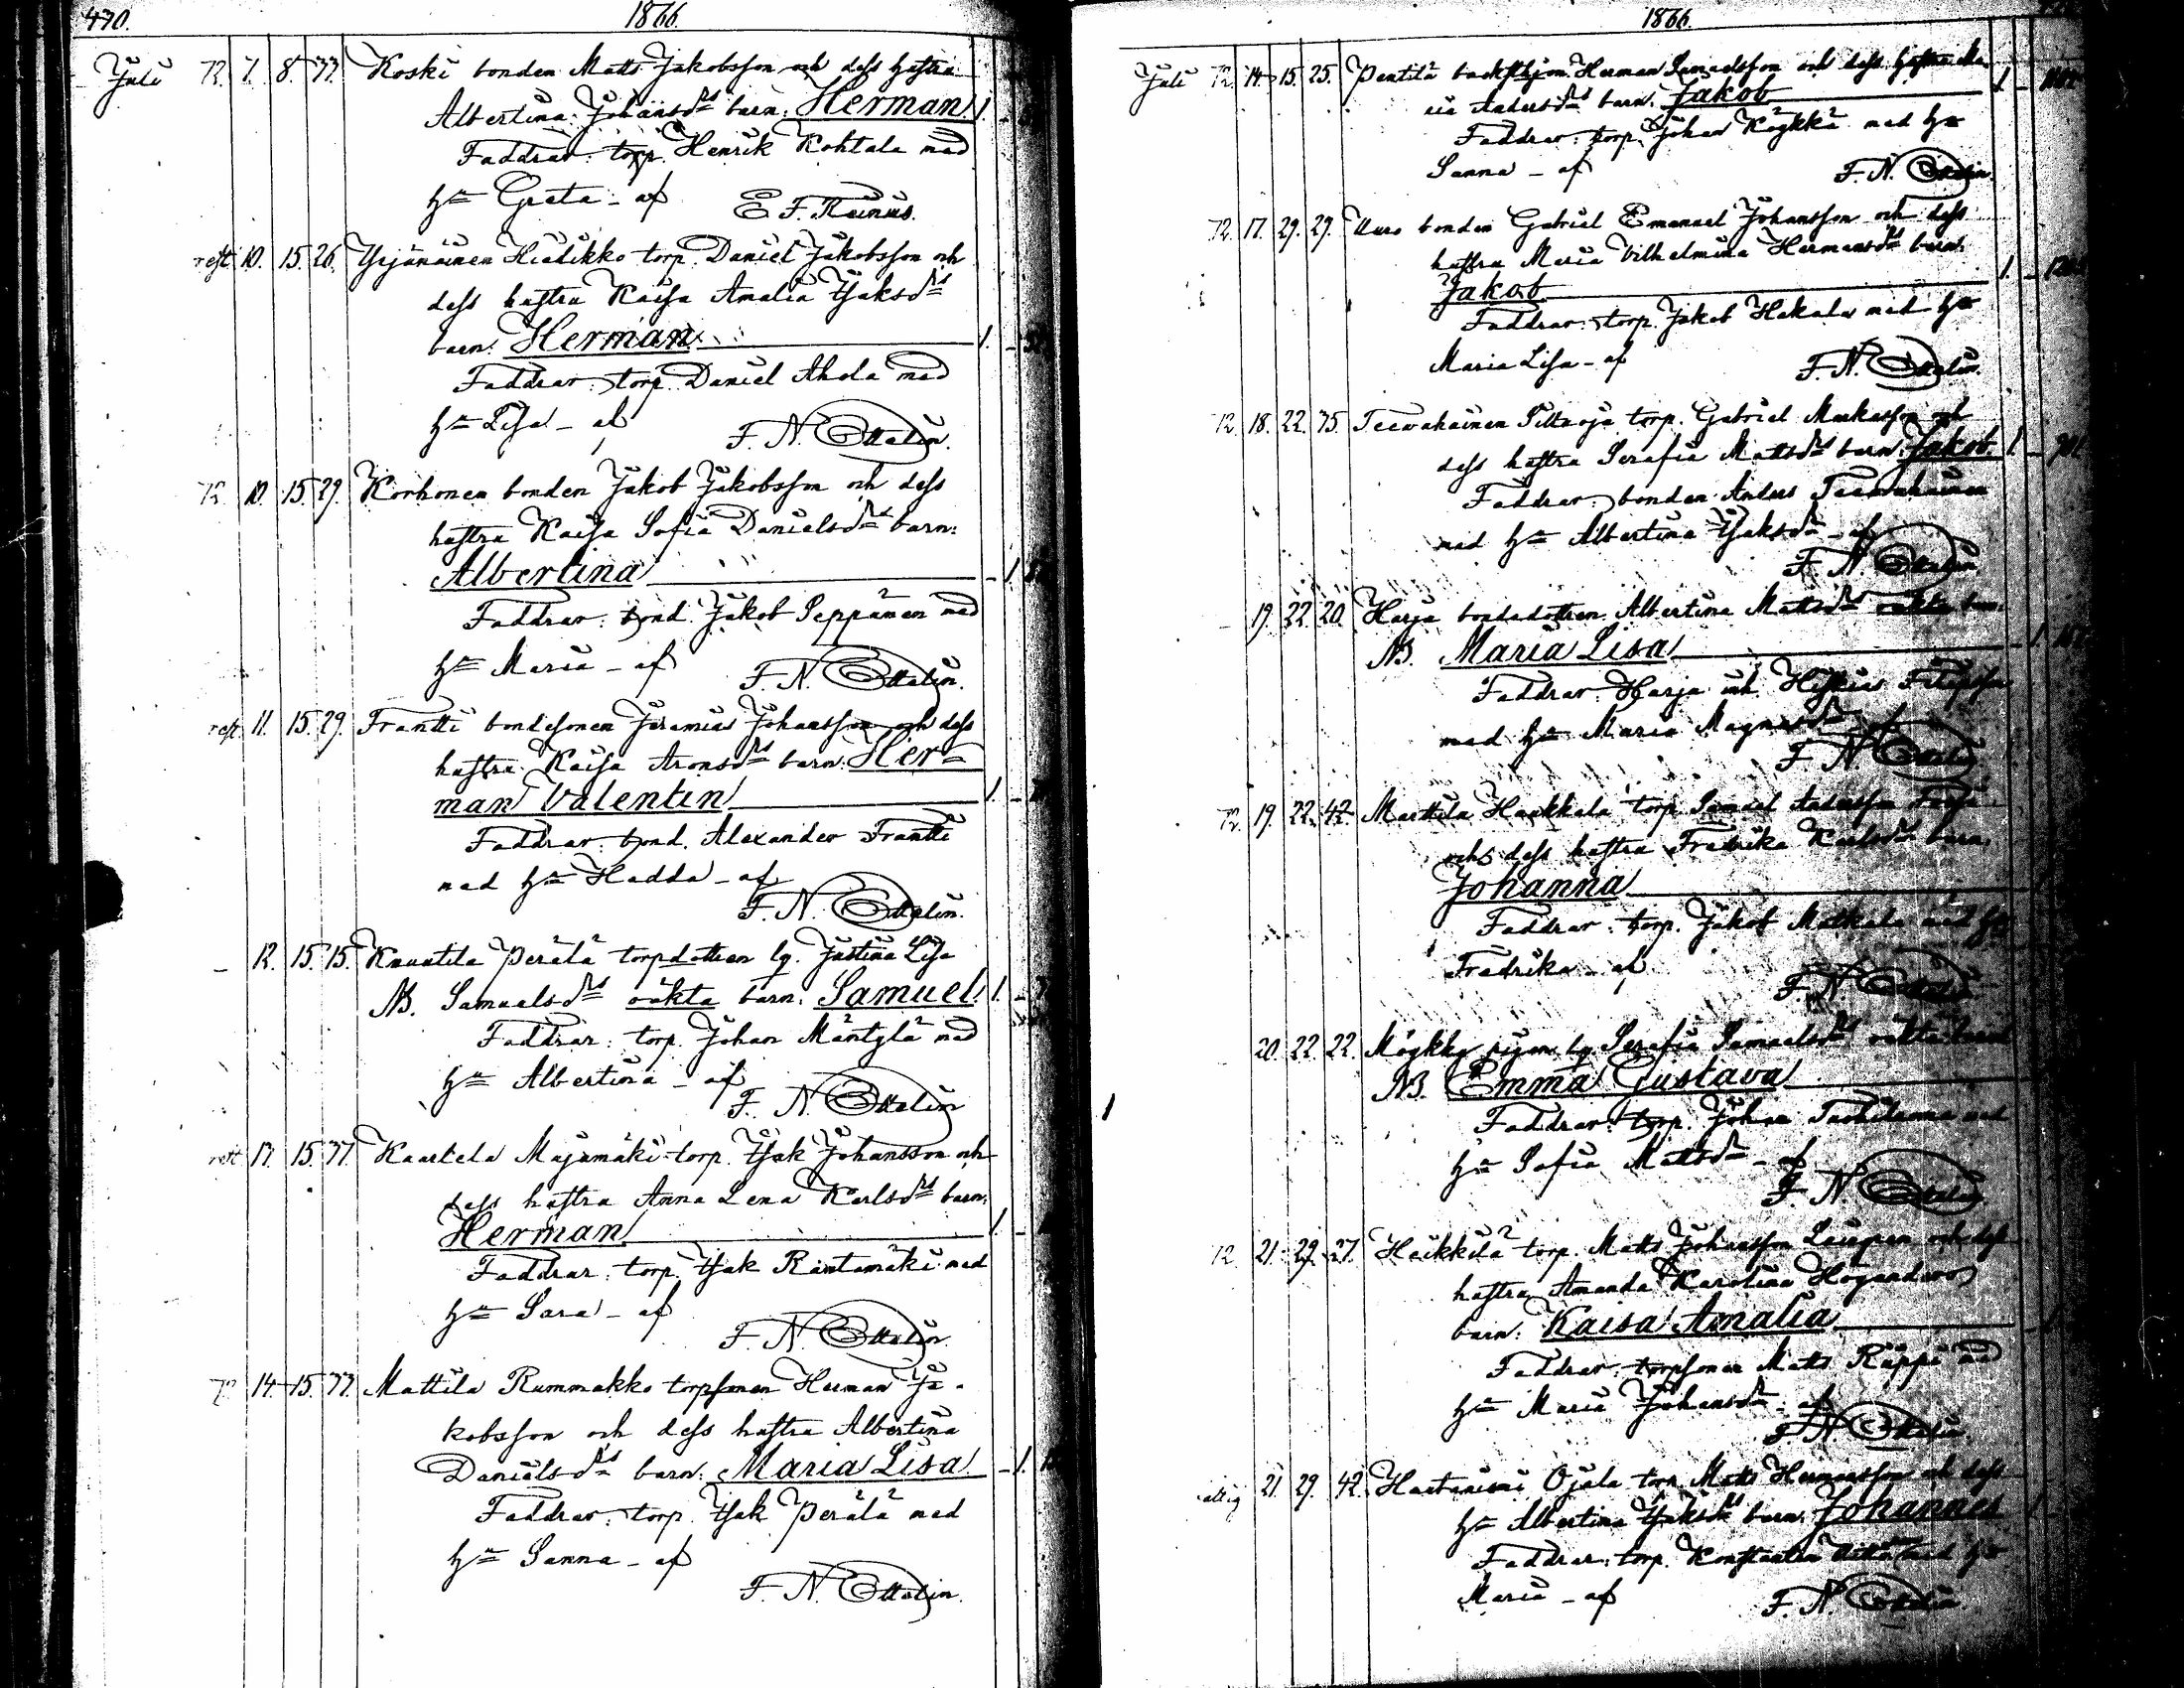 470.
1866.
Juli 72. 7. 8. 77. Koski bonden Matts Jakobsson och dess hustru
Albertina Johansdr barn: Herman 1.
Faddrar: torp. Henrik Kohtala med
hu Greta - af E. F. Reinius.
rest 10. 15. 26. Yrjänäinen torp. Daniel Jakobsson och
dess hustru Kaisa Amalia Isaksdr
barn: Herman 1.
Faddrar: torp. Daniel Ahola med
hu Lisa - af F. N. Ottelin.
72. 10. 15. 29. Korhonen bonden Jakob Jakobsson och dess
hustru Kaisa Sofia Danielsdr barn:
Albertina - 1.
Faddrar: bond. Jakob Seppänen med
hu Maria - af F. N. Ottelin.
rest 11. 15. 29. Frantti bondesonen Jeremias Johansson och dess
hustru Kaisa Aronsdr barn: Her-
man Valentin 1. -
Faddrar: bond. Alexander Frantti
med hu Hedda - af
F. N. Ottelin.
- 12. 15. 15. Knuutila Perälä torpdottren lg. Justina Lisa
NB. Samuelsdr oäkta barn: Samuel 1. -
Faddrar: torp. Johan Mäntylä med
hu Albertina - af
F. N. Ottelin
rest 13. 15. 37. Kaartela Majamäki torp. Isak Johansson och
dess hustru Anna Lena Karlsdr barn:
Herman 1. -
Faddrar: torp. Isak Rantamäki med
hu Sara - af
F. N. Ottelin
72 14. 15. 77. Mattila Rummakko torpsonen Herman Ja-
kobsson och dess hustru Albertina
Danielsdr barn: Maria Lisa - 1.
Faddrar: torp. Isak Perälä med
hu Sanna - af
F. N. Ottelin.
1866.
Juli 72. 14. 15. 25. Pentilä Herman Samuelsson och dess hustru Ma-
ria Andersdr barn: Jakob 1. -
Faddrar: torp. Johan Köykkä med hu
Sanna - af F. N. Ottelin.
72. 17. 29. 29. bonden Gabriel Emanuel Johansson och dess
hustru Maria Vilhelmina Hermansdr barn:
Jakob 1. -
Faddrar: torp. Jakob Hakala med hu
Maria Lisa - af F. N. Ottelin.
72. 18. 22. 75. torp. Gabriel och
dess hustru Serafia Mattsdr barn: Jakob 1. -
Faddrar: bonden Anders
med hu Albertina Isaksdr - af
F. N. Ottelin.
- 19. 22. 20. Harja bondedottren Albertina Mattsdr oäkta barn:
NB. Maria Lisa - 1.
Faddrar: Harja Hiskias Filipsson
med hu Maria Magnusdr - af
F. N. Ottelin
72. 19. 22. 42. Marttila Haukkala torp. Samuel Andersson
och dess hustru Fredrika Karlsdr barn:
Johanna
Faddrar: torp. Jakob Matkala med hu
Fredrika - af
F. N. Ottelin
- 20. 22. 22. Möykky pigan lg. Serafia Samuelsdr oäkta barn
NB. Emma Gustava
Faddrar: torp. Johan med
hu Sofia Mattsdr - af
F. N. Ottelin
72 21. 29. 27. Heikkilä torp. Matts Johansson och dess
hustru Amanda Karolina
barn: Kaisa Amalia
Faddrar: torpsonen Matts Räppi med
hu Maria Johansdr - af
F. N. Ottelin
21. 29. 42. Hautaniemi Ojala torp. Matts Hermansson och dess
hu Albertina Isaksdr barn: Johannes 1
Faddrar: torp. Konstantin med hu
Maria - af F. N. Ottelin